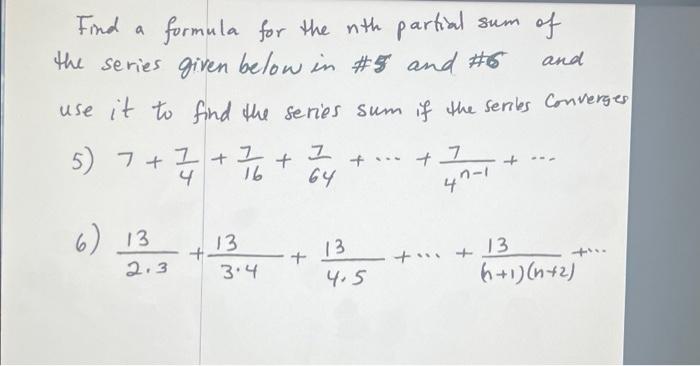 Find a formula for the nth partial sum of
the series given below in #5 and #6 and
use it to find the series sum if the series converges
5) 7 + 7/4 + 7/16 + 7/64 + ... + 7/4^(n-1) + ...
6) 13/(2·3) + 13/(3·4) + 13/(4·5) + ... + 13/((n+1)(n+2)) + ...